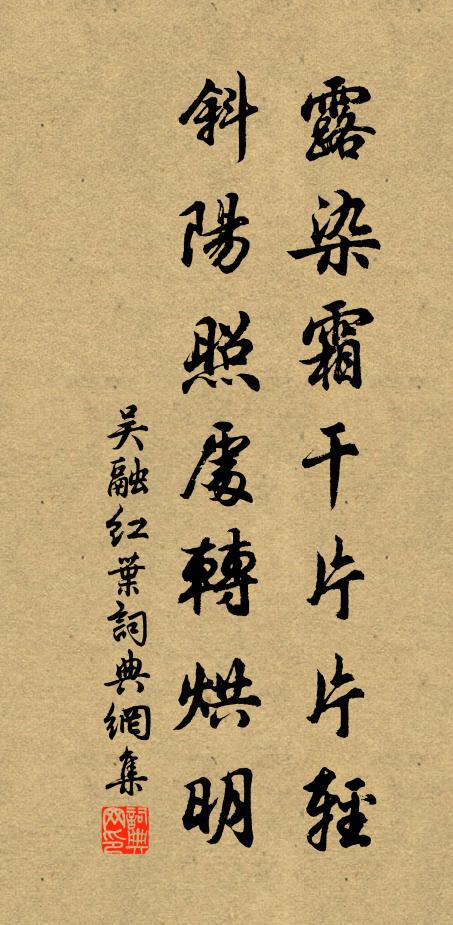 露染霜干片片輕
斜陽照處轉烘明
吳融紅葉詞典網集
詞典网印